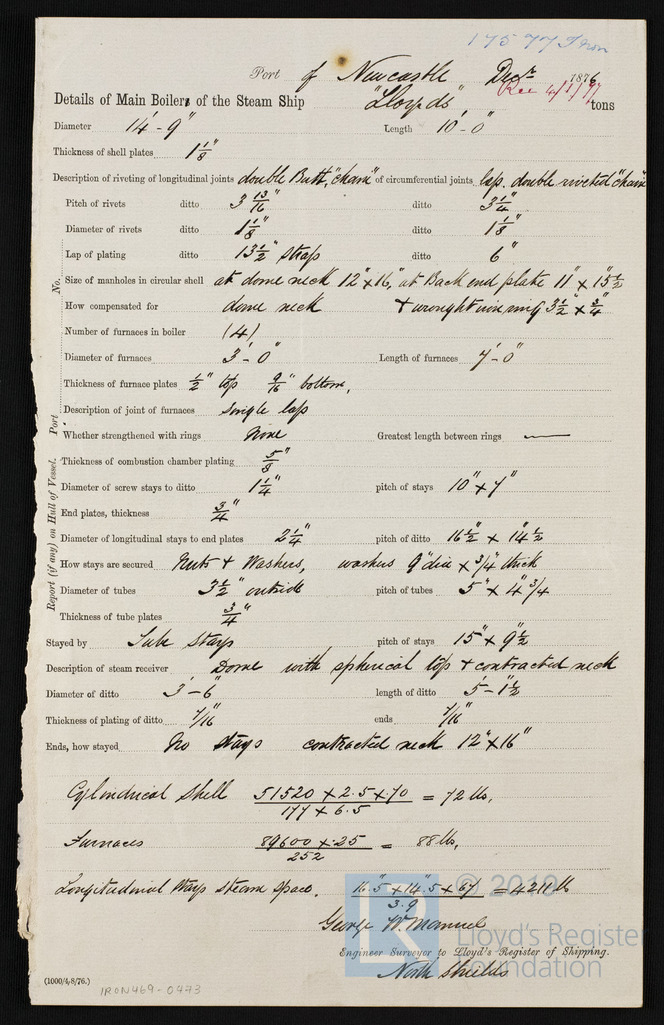 17577 Iron
Port of Newcastle Decr 1876
Rec 4/1/77
Details of Main Boilers of the Steam Ship "Lloyds" tons
Diameter 14'-9" Length 10'-0"
Thickness of shell plates 1 1/8"
Description of riveting of longitudinal joints double Butt, "chain" of circumferential joints lap. double riveted "chain"
Pitch of rivets ditto 3 13/16" ditto 3 1/4"
Diameter of rivets ditto 1 1/8" ditto 1 1/8"
Lap of plating ditto 13 1/2" strap ditto 6"
No. Size of manholes in circular shell at dome neck 12" x 16", at Back end plate 11" x 15 1/2
How compensated for dome neck + wrought iron ring 3 1/2" x 3/4"
Number of furnaces in boiler (4)
Diameter of furnaces 3'-0" Length of furnaces 7'-0"
Thickness of furnace plates 1/2" top 9/16" bottom,
Description of joint of furnaces single lap
Port
Whether strengthened with rings None Greatest length between rings —
Thickness of combustion chamber plating 5/8"
Diameter of screw stays to ditto 1 1/4" pitch of stays 10" x 7"
End plates, thickness 3/4"
Diameter of longitudinal stays to end plates 2 1/4" pitch of ditto 16 1/2" x 14 1/2
How stays are secured Nuts + Washers, washers 9" dia x 3/4" thick
Report (if any) on Hull of Vessel.
Diameter of tubes 3 1/2" outside pitch of tubes 5" x 4 3/4
Thickness of tube plates 3/4"
Stayed by Tube stays pitch of stays 15" x 9 1/2
Description of steam receiver Dome with spherical top + contracted neck
Diameter of ditto 3'-6" length of ditto 5'-1 1/2
Thickness of plating of ditto 7/16" ends 7/16"
Ends, how stayed No stays contracted neck 12" x 16"
Cylindrical Shell 51520 x 2.5 x .70 / 177 x 6.5 = 72 lbs,
Furnaces 89600 x .25 / 252 = 88 lbs,
Longitudinal stays steam space. 16.5 x 14.5 x 67 / 3.9 = 4211 lb
George W. Manuel
Engineer Surveyor to Lloyd's Register of Shipping.
North Shields
(1000/4/8/76.)
IRON469-0473
© 2019
LR
Lloyd's Register
Foundation